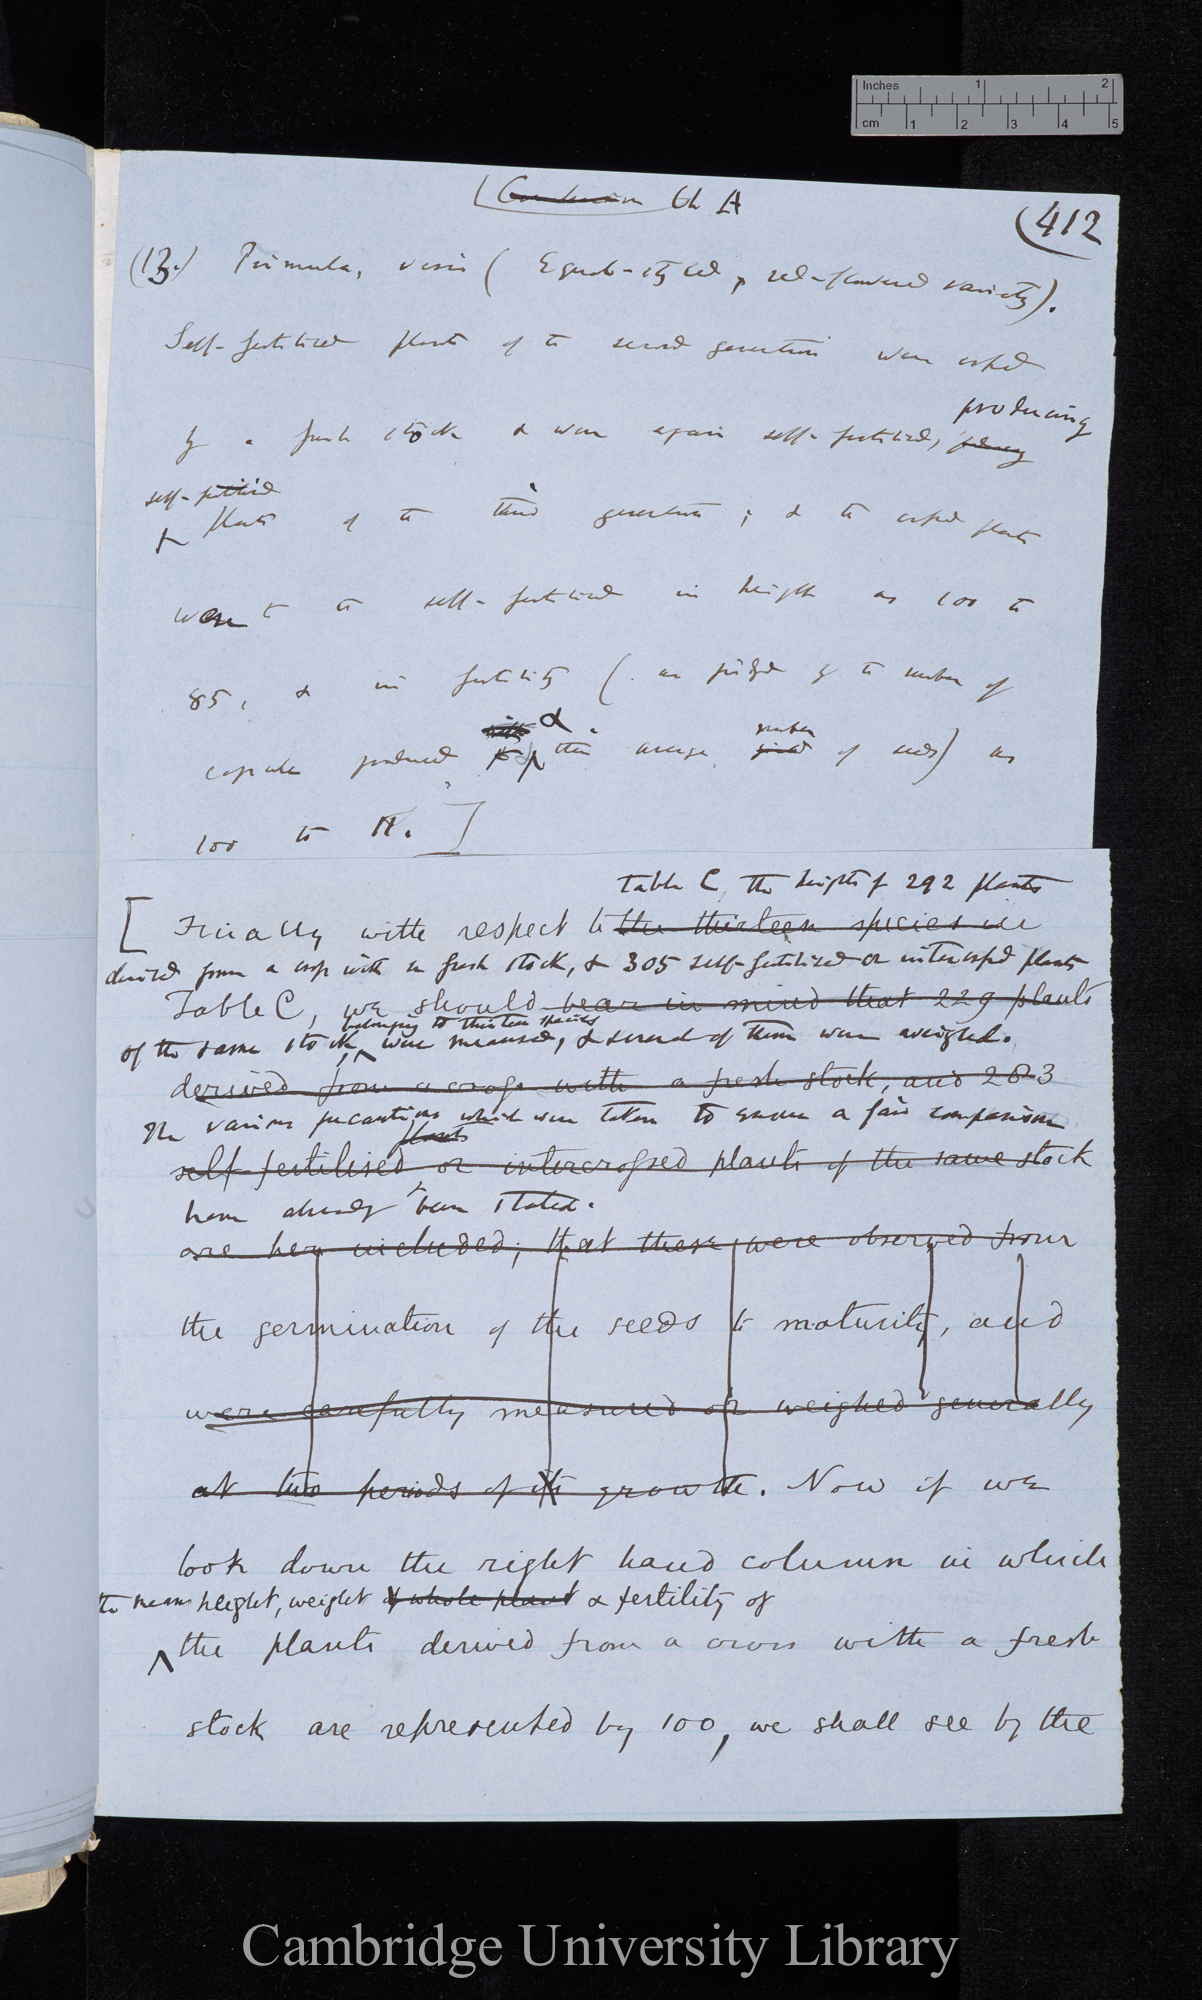 Inches 1 2
cm 1 2 3 4 5
Conclusion Ch A
(412
(13.) Primula veris (Equal-styled, red-flowered variety).
Self-fertilised plants of the second generation were crossed
producing
by a fresh stock & were again self-fertilised,
self-fertilised
plants of the third generation; & the crossed plants
were to the self-fertilised in height as 100 to
85, & in fertility (as judged by the number of
with &
number
capsules produced their average yield of seeds) as
100 to 11.]
Table C, the heights of 292 plants
[Finally with respect to the thirteen species in
derived from a cross with a fresh stock, & 305 self-fertilised or intercrossed plants
Table C, we should bear in mind that 229 plants
belonging to thirteen species
of the same stock, were measured, & several of them were weighed.
derived from a cross with a fresh stock, and 283
The various precautions which were taken to ensure a fair comparison
plants
self-fertilised or intercrossed plants of the same stock
have already been stated.
are here included; that these were observed from
the germination of the seeds to maturity, and
were carefully measured or weighed generally
at two periods of growth. Now if we
look down the right hand column in which
the mean height, weight of whole plant & fertility of
the plants derived from a cross with a fresh
stock are represented by 100, we shall see by the
Cambridge University Library